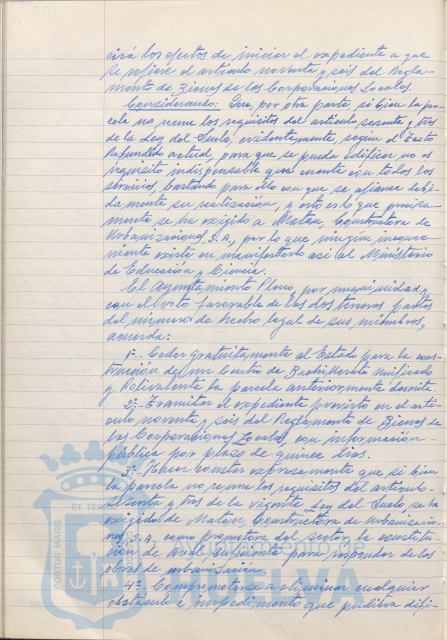 cirá los efectos de iniciar el expediente a que
se refiere el artículo noventa y seis del Regla-
mento de Bienes de las Corporaciones Locales.
Considerando: Que, por otra parte, si bien la par-
cela no reune los requisitos del artículo sesenta y tres
de la Ley del Suelo, evidentemente, según el Texto
Refundido actual, para que se pueda edificar no es
requisito indispensable que cuente con todos los
servicios, bastando para ello con que se afiance debi-
damente su realización, y esto es lo que precisa-
mente se ha exigido a Maten, Constructora de
Urbanizaciones, S.A., por lo que ningún inconve-
niente existe en manifestarlo así al Ministerio
de Educación y Ciencia.
El Ayuntamiento Pleno, por unanimidad y
con el voto favorable de las dos terceras partes
del número de hecho y legal de sus miembros,
acuerda:
1º.- Ceder gratuitamente al Estado para la cons-
trucción de un Centro de Bachillerato Unificado
y Polivalente la parcela anteriormente descrita.
2º.- Tramitar el expediente previsto en el artí-
culo noventa y seis del Reglamento de Bienes de
las Corporaciones Locales, con información
pública por plazo de quince días.
3º.- Hacer constar expresamente que si bien
la parcela no reune los requisitos del artículo
sesenta y tres de la vigente Ley del Suelo, se ha
exigido de Maten, Constructora de Urbanizacio-
nes, S.A. como promotora del sector, la constitu-
ción de aval suficiente para responder de las
obras de urbanización.
4º.- Comprometerse a eliminar cualquier
obstáculo e impedimento que pudiera difi-
PORTUS MARIS
ET TE
HUELVA